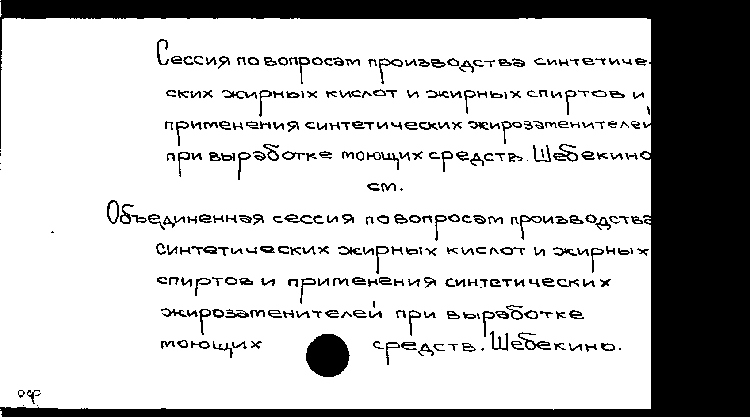 Сессия по вопросам производства синтетиче-
ских жирных кислот и жирных спиртов и
применения синтетических жирозаменителей
при выработке моющих средств. Шебекино
см.
Объединенная сессия по вопросам производства
синтетических жирных кислот и жирных
спиртов и применения синтетических
жирозаменителей при выработке
моющих средств. Шебекино.